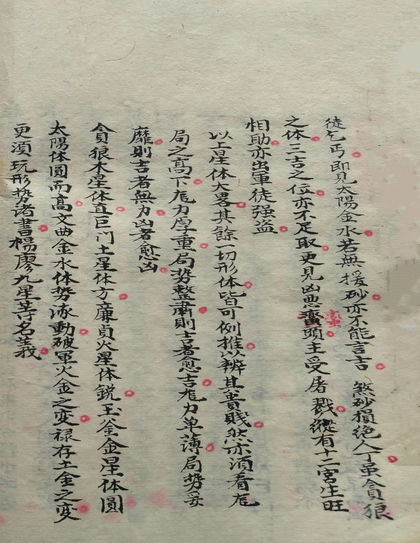 徒乞丐即見太陽金水若無援砂亦不能言吉煞砂損絶人丁虽貪狼
之体三吉之位亦不足取更見凶恶蠻頭主受屠戮縱有十二宮生旺
相助亦出軍徒強盗
以上星体大畧其餘一切形体皆可例推以辨其貴賤然亦須看龙
局之高下龙力厚重局势整肅則吉者愈吉龙力单薄局势妥
靡則吉者無力凶者愈凶
貪狼木星体直巨门土星体方廉貞火星体鋭武金星体圆
太陽体圆而高文曲金水体势泳動破軍火金之变禄存土金之变
更須玩形势诸書楊廖九星等名義